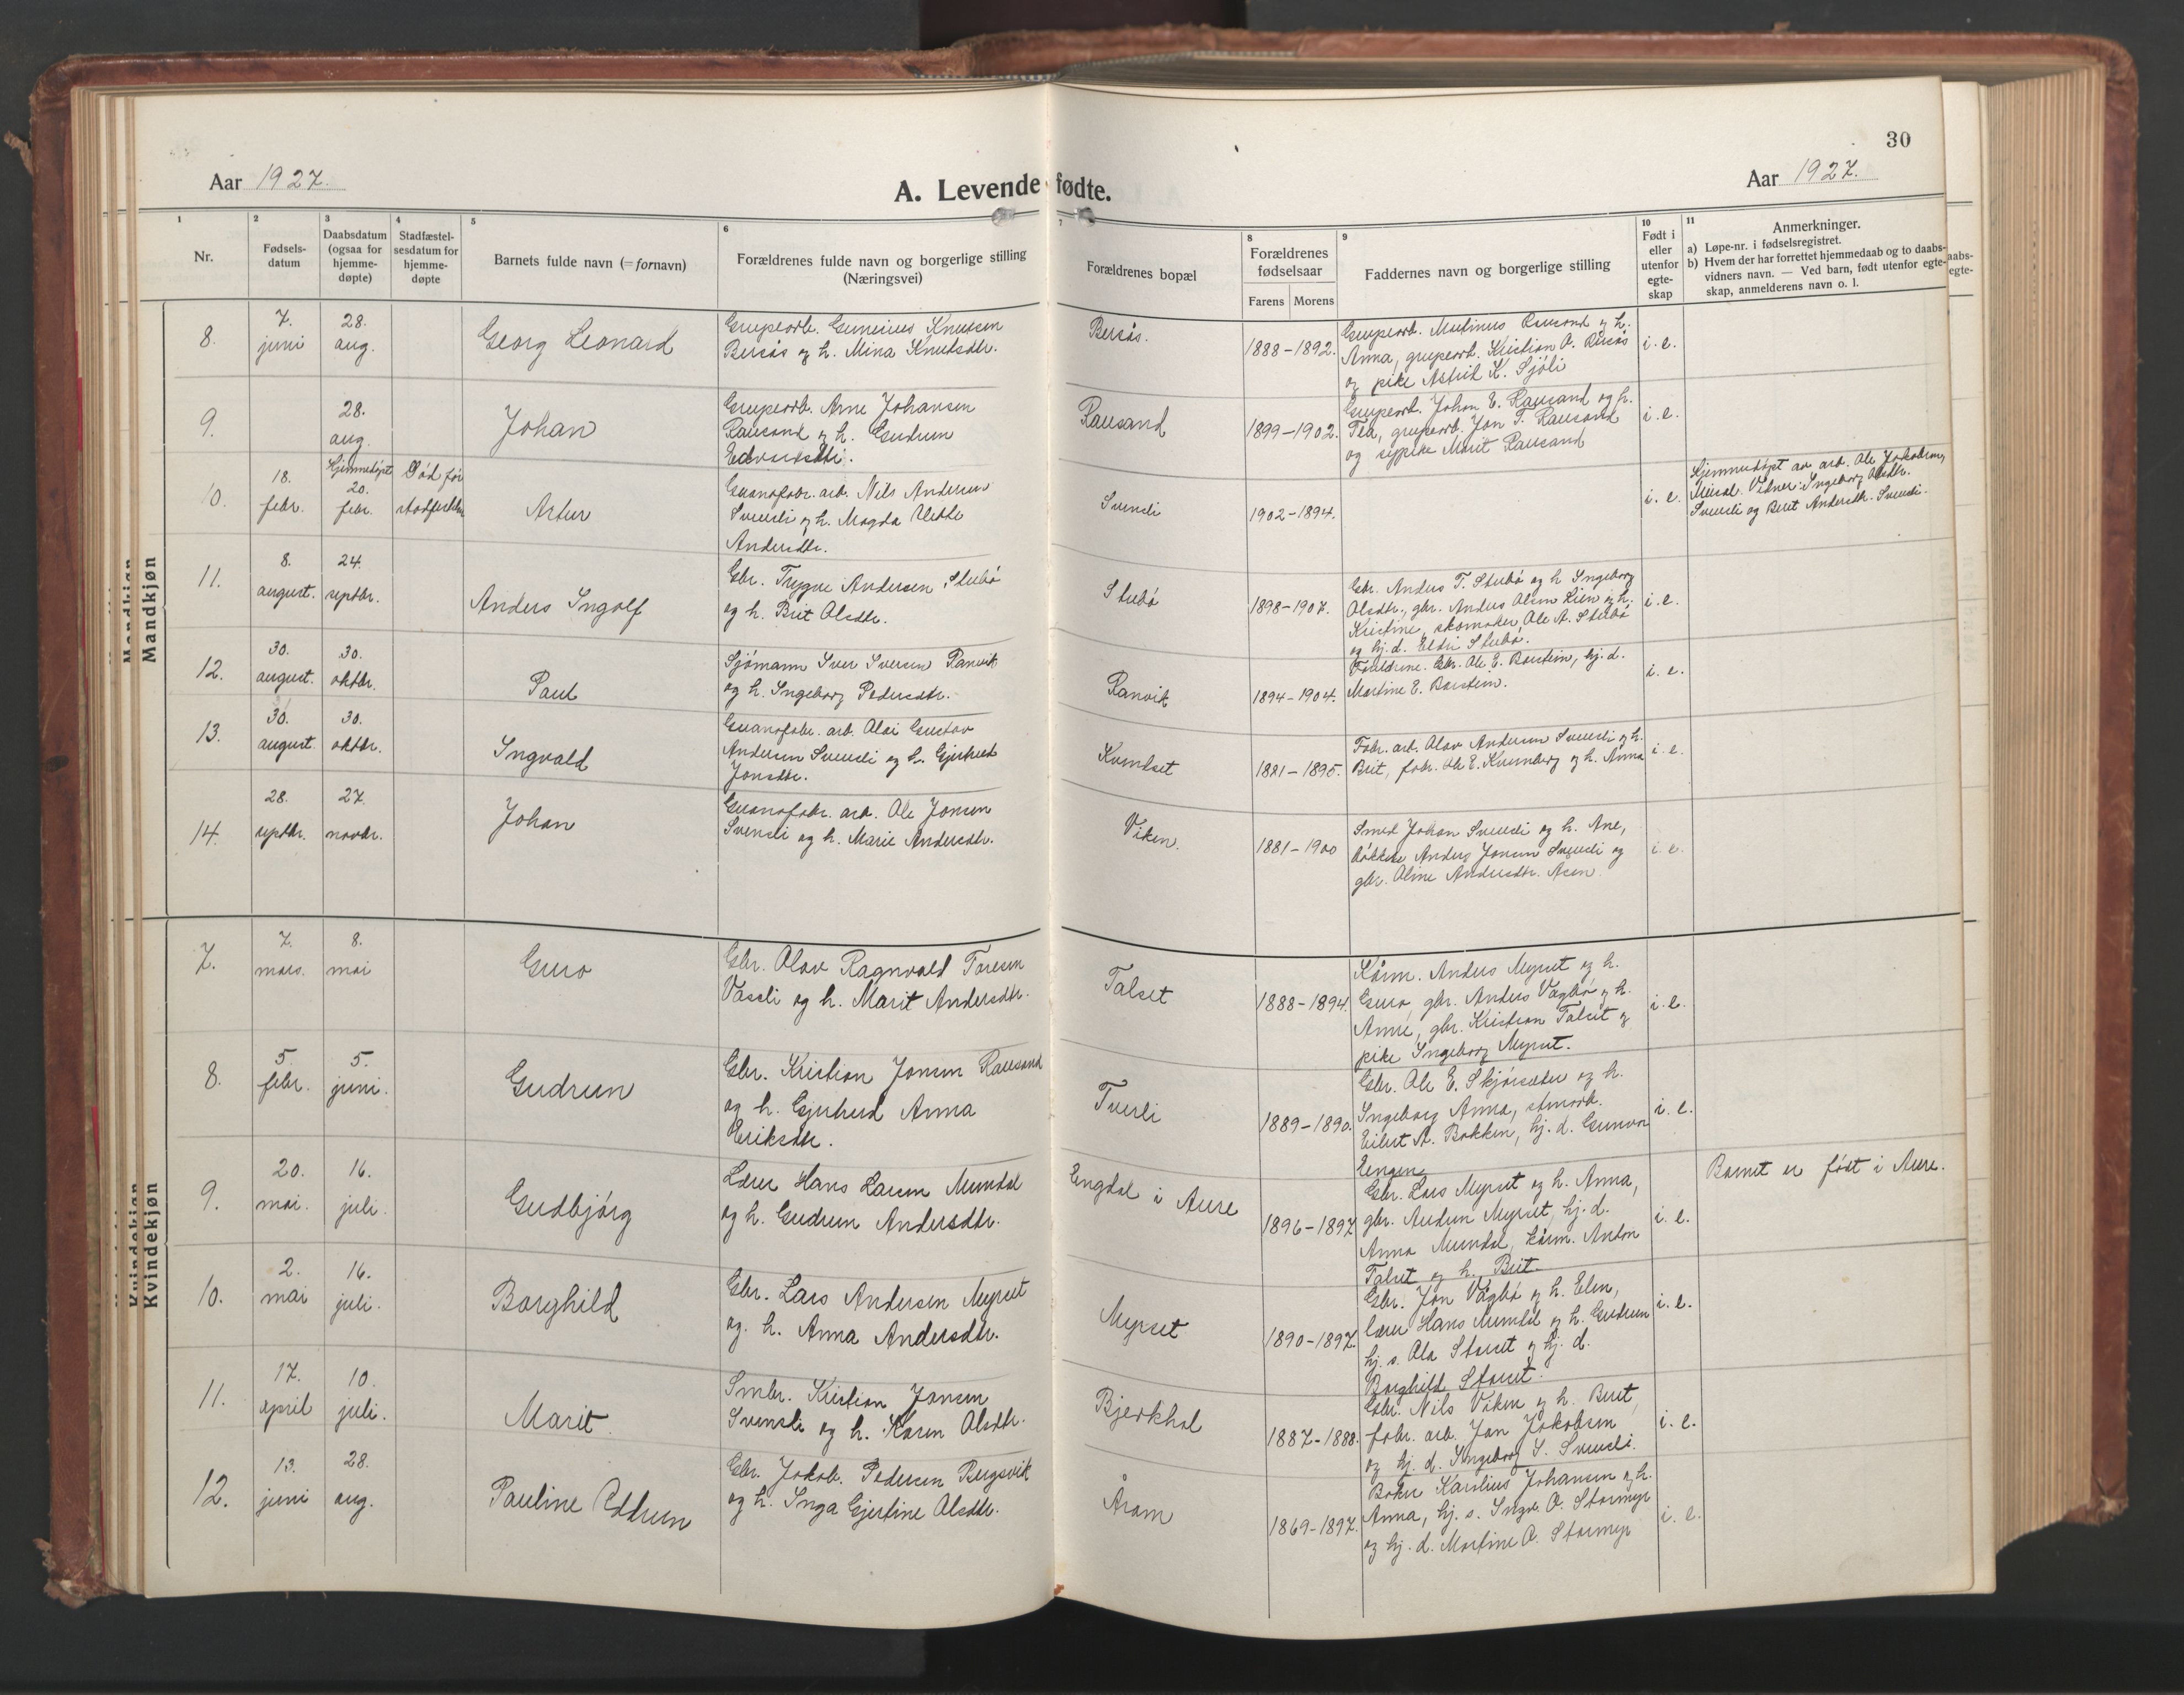 30
Aar 1927.
A. Levende fødte.
Aar 1927.
1 2 3 4 5 6 7 8 9 10 11
Nr.
Fødsels-
datum
Daabsdatum
(ogsaa for
hjemme-
døpte)
Stadfæstel-
sesdatum for
hjemme-
døpte
Barnets fulde navn (= fornavn)
Forældrenes fulde navn og borgerlige stilling
(Næringsvei)
Forældrenes bopæl
Forældrenes
fødselsaar
Farens Morens
Faddernes navn og borgerlige stilling
Født i
eller
utenfor
egte-
skap
Anmerkninger.
a) Løpe-nr. i fødselsregistret.
b) Hvem der har forrettet hjemmedaab og to daabs-
vidners navn. — Ved barn, født utenfor egte-
skap, anmelderens navn o. l.
aabs-
egte-
Mandkjøn
8.
7.
juni
28.
aug.
Georg Leonard
Grupearb. Gunerius Knutsen
Bersås og h. Mina Knutsdtr.
Bersås.
1888-1892.
Grupearb. Martinus Rausand og h.
Anna, grupearb. Kristian O.
og pike Astrid K. Sjöli
i. e.
9.
28.
aug.
Johan
Grupearb. Arne Johansen
Rausand og h. Gudrun
Edvardsdtr.
Rausand
1899-1902.
Grupearb. Johan E. Rausand og h.
Tea, grupearb. Jon T. Rausand
og sypike Marit Rausand
i. e.
10.
18.
febr.
Hjemmedöpt
20.
febr.
Död för
Artur
Guanofabr. arb. Nils Andersen
Svensli og h. Magda
Andersdtr.
Svensli
1902-1894.
i. e.
Hjemmedöpt av arb. Ole Jakobsen,
Vidner: Ingeborg Olsdtr.
Svensli og Beret Andersdtr. Svensli.
11.
8.
august.
24.
septbr.
Anders Ingolf
Gbr. Trygve Andersen Stubö
og h. Brit Olsdtr.
Stubö
1898-1907.
Gbr. Anders T. Stubö og h. Ingeborg
Olsdtr., gbr. Anders Olsen Lien og h.
Kristine, skomaker Ole A. Stubö
og hj. d. Eldri Stubö.
i. e.
12.
30.
august.
30.
oktbr.
Paul
Sjömann Iver Iversen Ranvik
og h. Ingeborg Pedersdtr.
Ranvik
1894-1904.
Foreldrene. Gbr. Ole E. Barstein, hj. d.
Martine E. Barstein.
i. e.
13.
30.
august.
30.
oktbr.
Ingvald
Guanofabr. arb. Olai Gustav
Andersen Svensli og h. Gjertrud
Jonsdtr.
Kvendset
1891-1895.
Fabr. arb. Olav Andersen Svensli og h.
Brit, fabr. Ole E. Kvernberg og h. Anna
i. e.
14.
28.
septbr.
27.
novbr.
Johan
Guanofabr. arb. Ole Jonsen
Svensli og h. Marie Andersdtr.
Viken.
1881-1900
Smed Johan Svensli og h. Ane,
Anders Jonsen Svensli og
gbr. Oline Andersdtr. Aasen.
i. e.
Kvindekjøn
7.
7.
mars.
8.
mai
Guro
Gbr. Olav Ragnvald Toresen
Vassli og h. Marit Andersdtr.
Talset
1888-1894.
Kårm. Anders Myrset og h.
Guro, gbr. Anders Vågbö og h.
Anne, gbr. Kristian Talset og
pike Ingeborg Myrset.
i. e.
8.
5.
febr.
5.
juni.
Gudrun
Gbr. Kristian Jonsen Rausand
og h. Gjertrud Anna
Eriksdtr.
Tverli
1889-1890.
Gbr. Ole E. Skjörsæter og h.
Ingeborg Anna,
Eilert A. Bakken, hj. d. Gunvor
Engen
i. e.
9.
20.
mai.
16.
juli.
Gudbjörg
Lærer Hans Larsen Mundal
og h. Gudrun Andersdtr.
Engdal i Aure
1896-1897
Gbr. Lars Myrset og h. Anna,
gbr. Audun Myrset, hj. d.
Anna Mundal, kårm. Anton
Talset og h. Brit.
i. e.
Barnet er födt i Aure.
10.
2.
mai
16.
juli.
Borghild
Gbr. Lars Andersen Myrset
og. h. Anna Andersdtr.
Myrset
1890-1897.
Gbr. Jon Vågbö og h. Elen,
lærer Hans Mundal og h. Gudrun
hj. s. Ola Storset og hj. d.
Borghild Storset.
i. e.
11.
17.
april
10.
juli.
Marit.
Smbr. Kristian Jansen
Svensli og h. Karen Olsdtr.
Bjerkhol
1887-1888.
Gbr. Nils Viken og h. Beret,
fabr. arb. Jon Jakobsen
og hj. d. Ingeborg S. Svensli.
i. e.
12.
13.
juni
28.
aug.
Pauline Oddrun
Gbr. Jakob Pedersen Bugsvik
og h. Inga Gjertine Olsdtr.
Åram
1869-1897.
Baker Karilius Johansen og h.
Anna, hj. s. Ingv. O. Stormyr
og hj. d. Martine O. Stormyr
i. e.